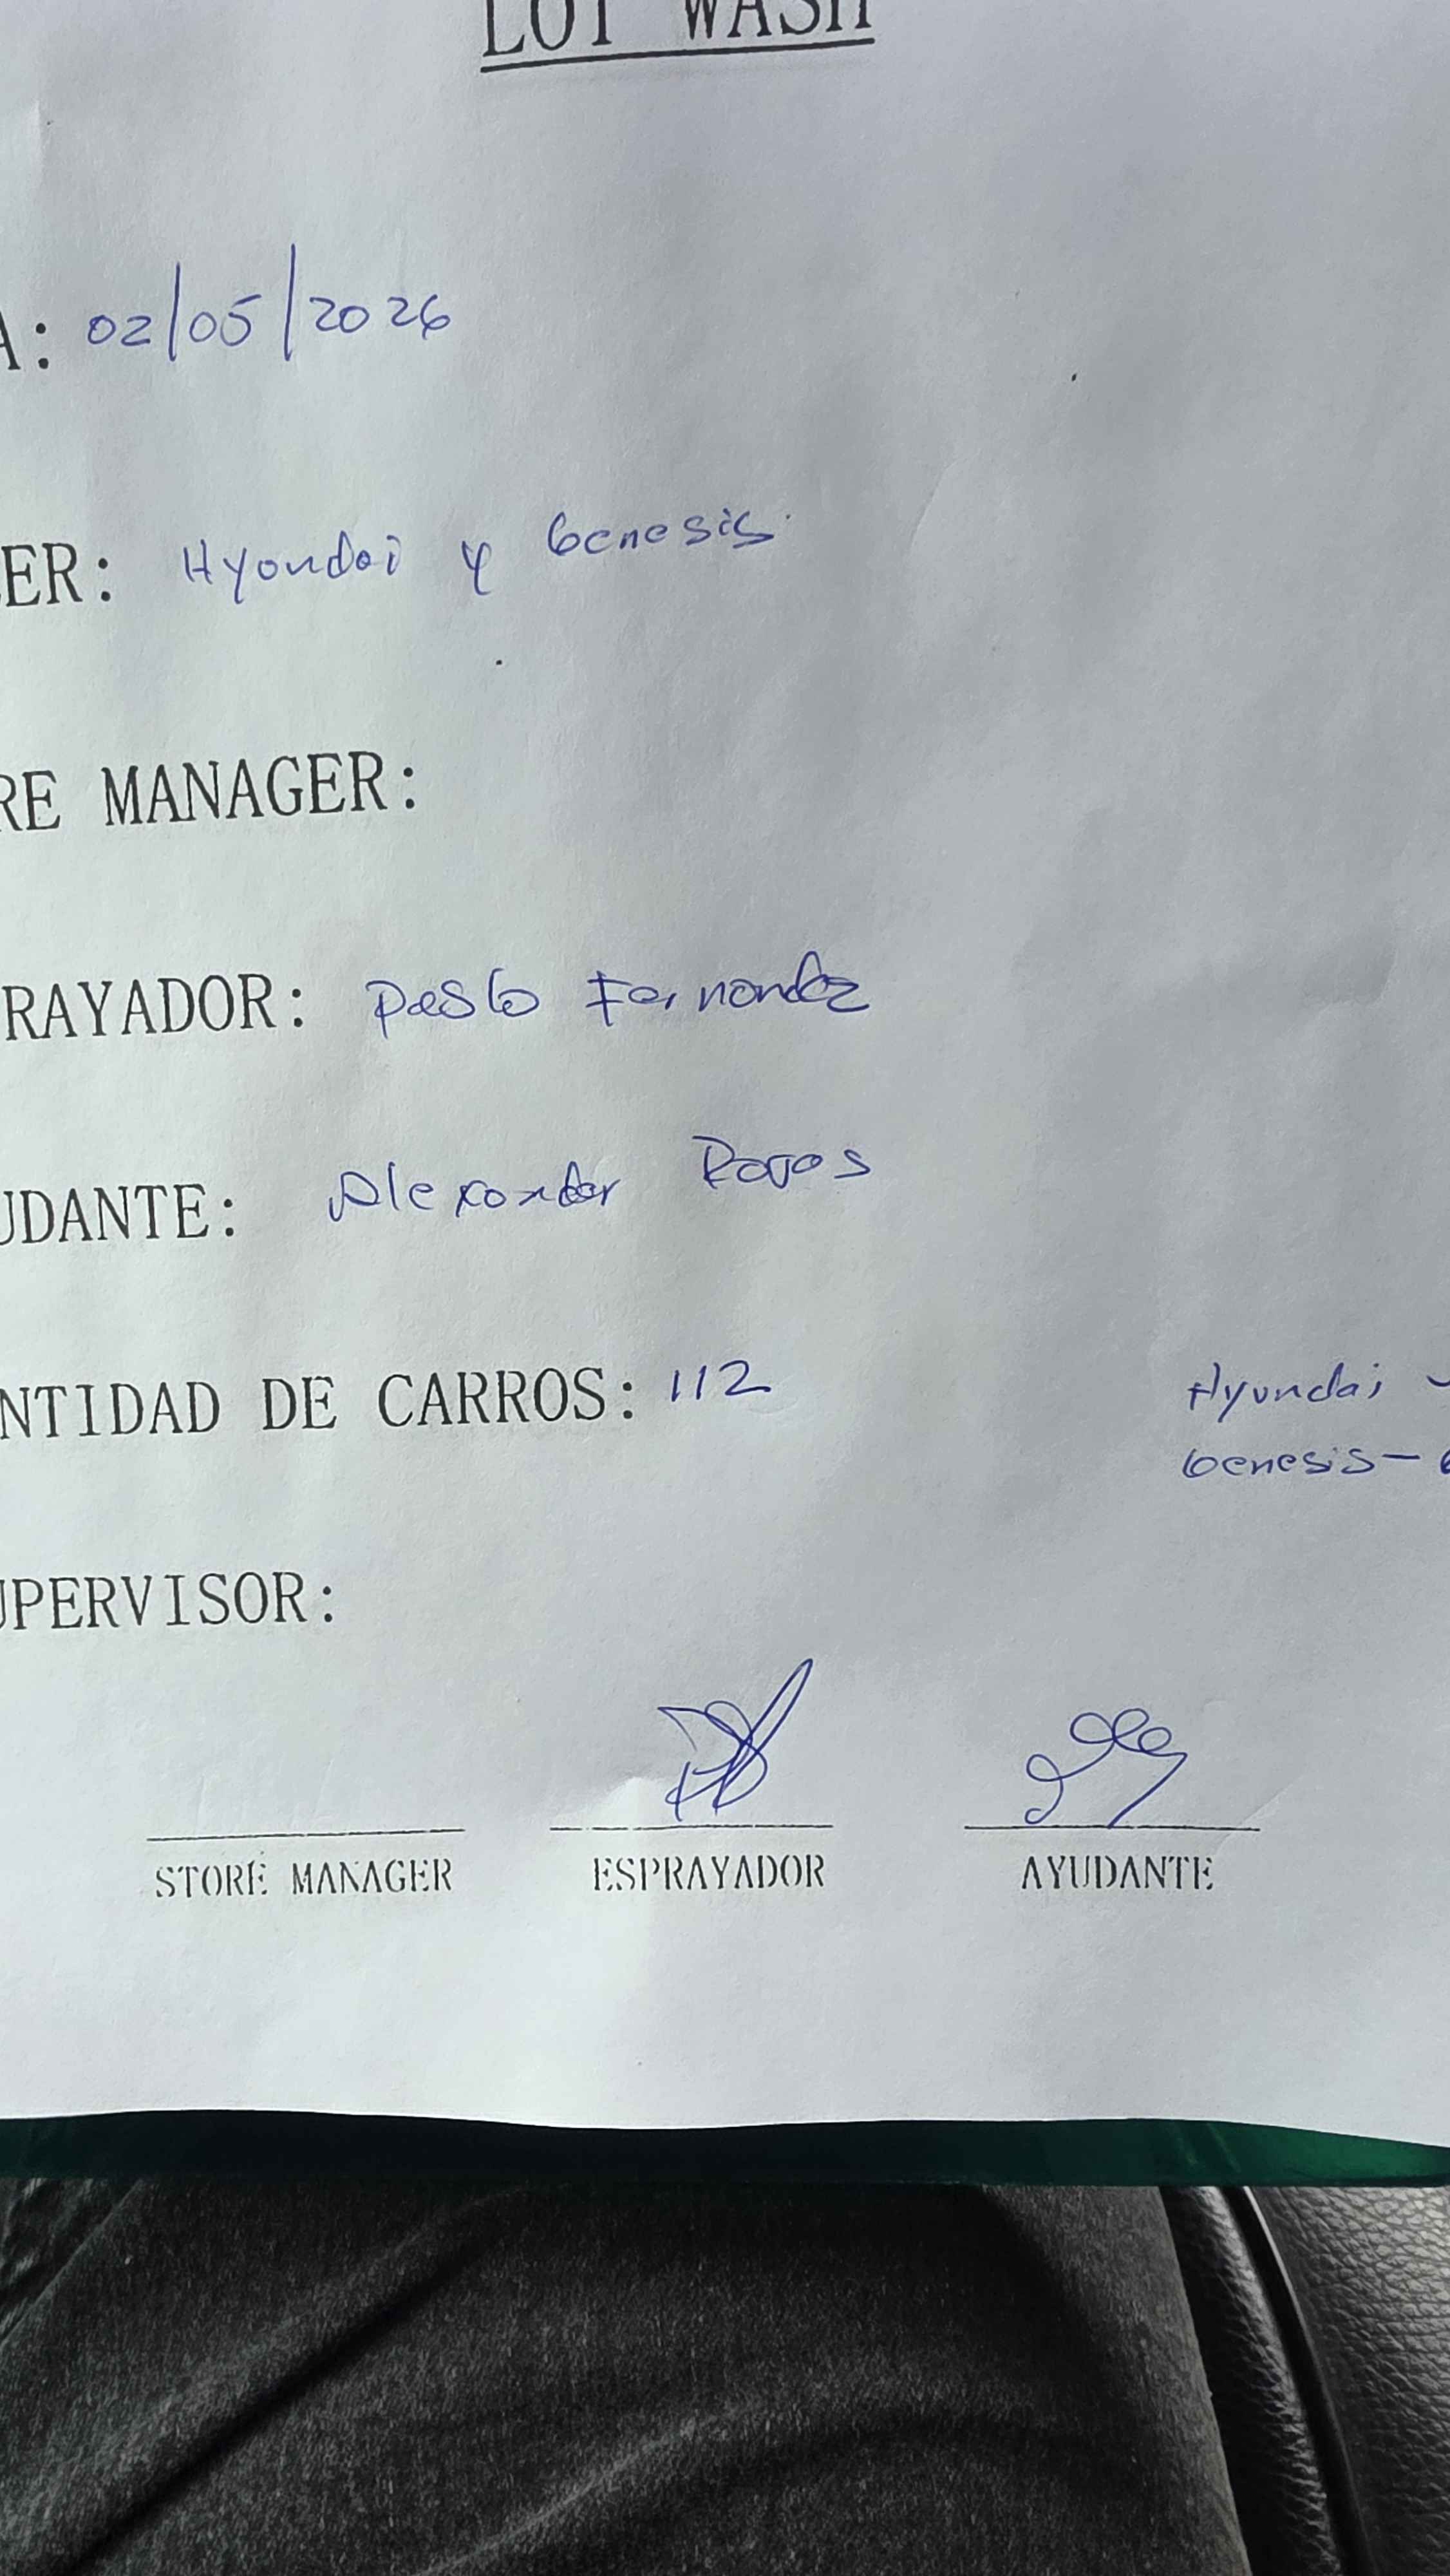 LOT WASH
A: 02/05/2026
ER: Hyundai y Genesis
RE MANAGER:
PRAYADOR: Pablo Fernandez
UDANTE: Alexander Rojas
NTIDAD DE CARROS: 112
Hyundai -
Genesis -
UPERVISOR:
STORE MANAGER ESPRAYADOR AYUDANTE